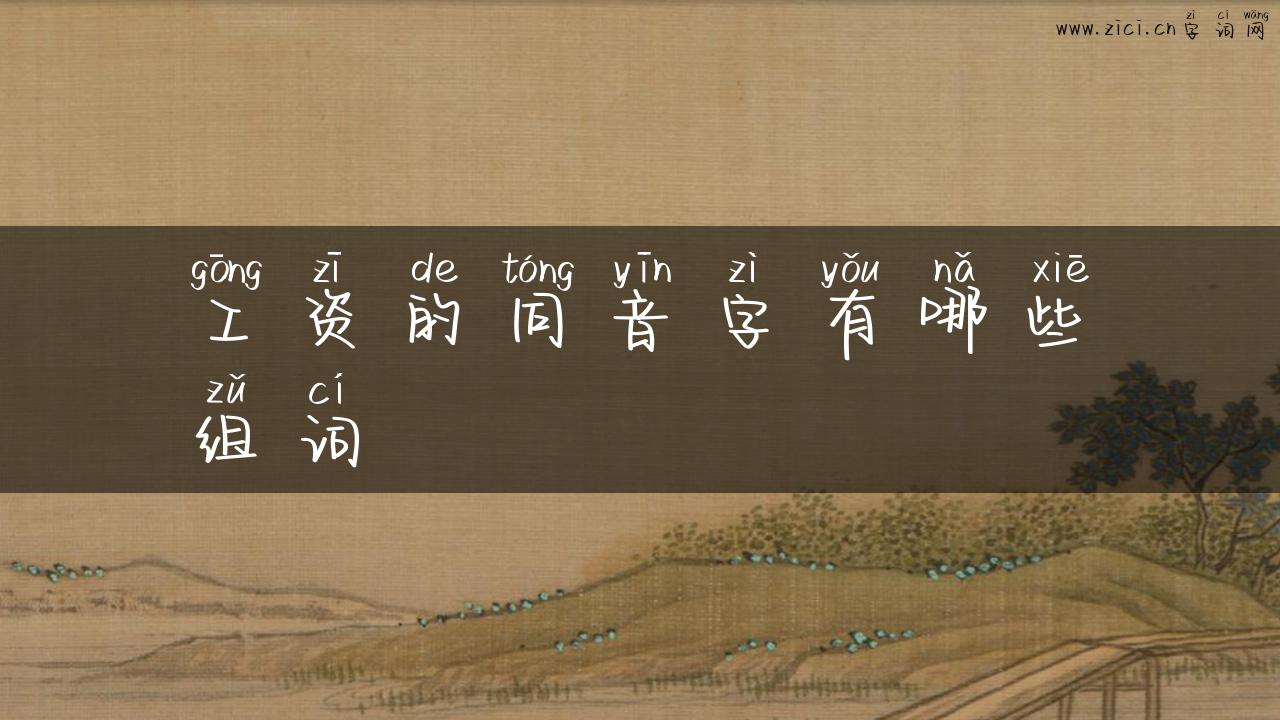 zì cí wǎng
www.zici.cn字词网
gōng zī de tóng yīn zì yǒu nǎ xiē
工资的同音字有哪些
zǔ cí
组词